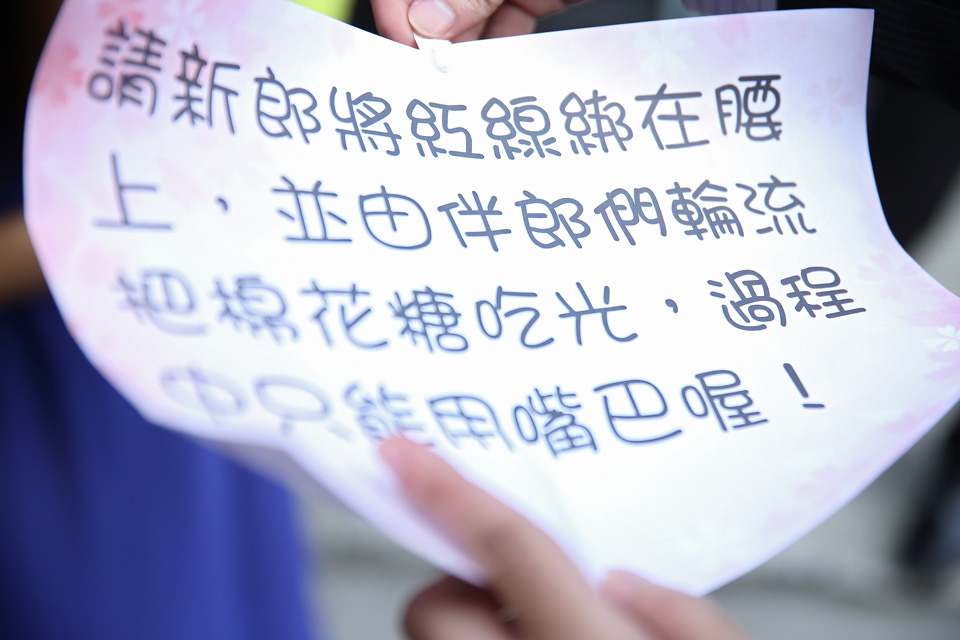 請新郎將紅線綁在腰
上，並由伴郎們輪流
把棉花糖吃光，過程
中只能用嘴巴喔！